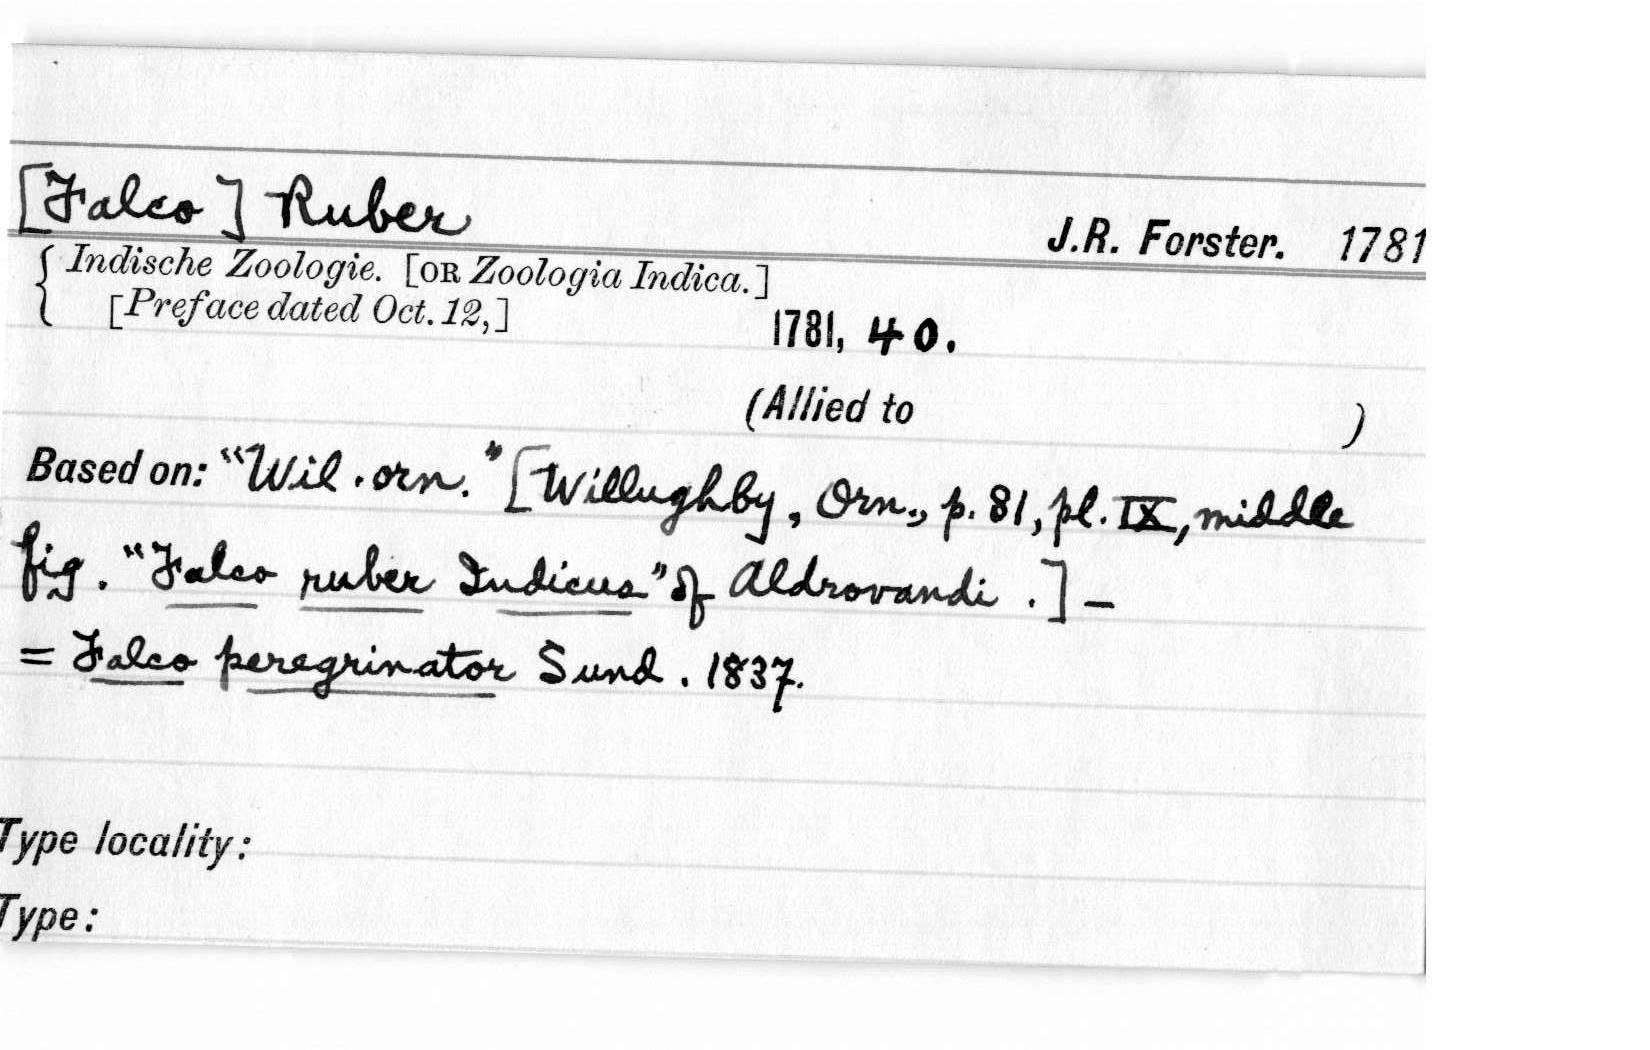 [Falco] Ruber
J.R. Forster. 1781
{ Indische Zoologie. [OR Zoologia Indica.]
[Preface dated Oct. 12,]
1781, 40.
(Allied to )
Based on: "Wil. orn." [Willughby, Orn., p. 81, pl. IX, middle
fig. "Falco ruber Indicus" of Aldrovandi.] –
= Falco peregrinator Sund. 1837.
Type locality:
Type: